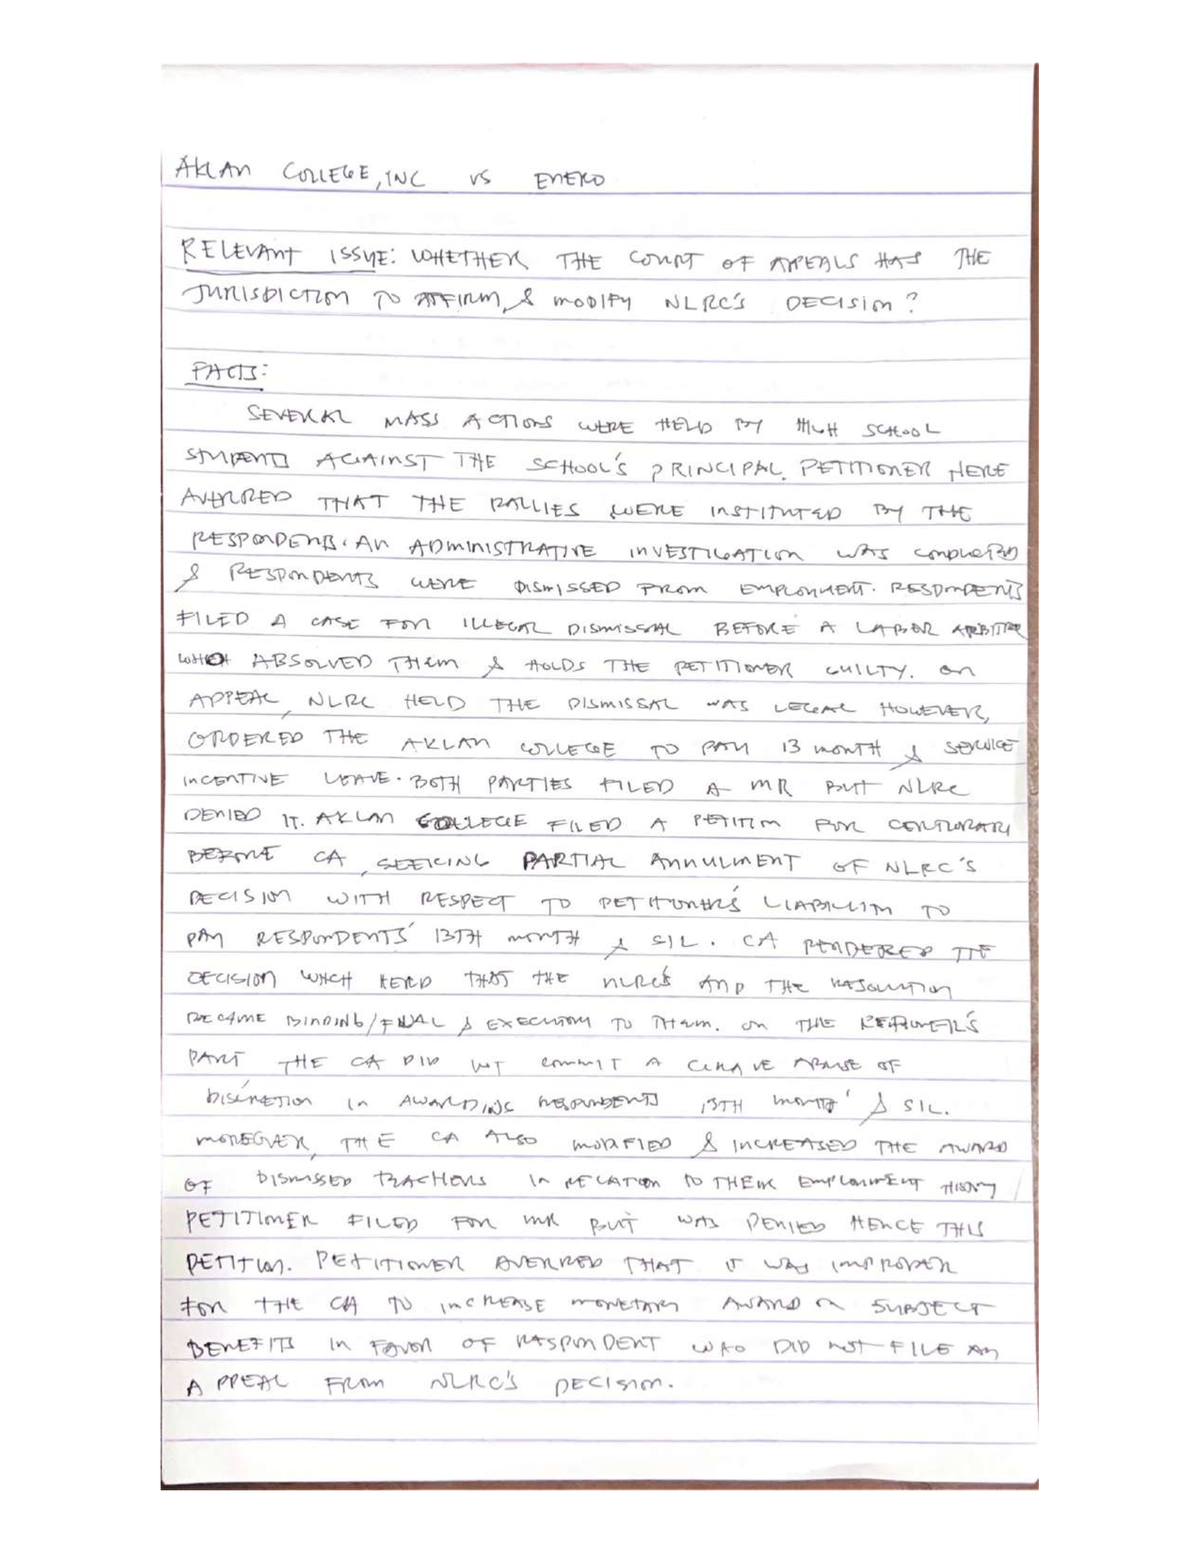 AKLAN COLLEGE, INC VS ENERO
RELEVANT ISSUE: WHETHER THE COURT OF APPEALS HAS THE
JURISDICTION TO AFFIRM, & MODIFY NLRC'S DECISION?
FACTS:
SEVERAL MASS ACTIONS WERE HELD BY HIGH SCHOOL
STUDENTS AGAINST THE SCHOOL'S PRINCIPAL. PETITIONER HERE
AVERRED THAT THE RALLIES WERE INSTITUTED BY THE
RESPONDENTS. AN ADMINISTRATIVE INVESTIGATION WAS CONDUCTED
& RESPONDENTS WERE DISMISSED FROM EMPLOYMENT. RESPONDENTS
FILED A CASE FOR ILLEGAL DISMISSAL BEFORE A LABOR ARBITER
ABSOLVED THEM & HOLDS THE PETITIONER GUILTY. ON
APPEAL, NLRC HELD THE DISMISSAL WAS LEGAL HOWEVER,
ORDERED THE AKLAN COLLEGE TO PAY 13 MONTH & SERVICE
INCENTIVE LEAVE. BOTH PARTIES FILED A MR BUT NLRC
DENIED IT. AKLAN COLLEGE FILED A PETITION FOR CERTIORARI
BEFORE CA, SEEKING PARTIAL ANNULMENT OF NLRC'S
DECISION WITH RESPECT TO PETITIONER'S LIABILITY TO
PAY RESPONDENTS' 13TH MONTH & SIL. CA RENDERED
DECISION WHCH HELD THAT THE NLRC'S AND THE RESOLUTION
BECAME BINDING/FINAL & EXECUTORY TO THEM. ON THE PETITIONER'S
PART THE CA DID NOT COMMIT A GRAVE ABUSE OF
DISCRETION IN AWARDING RESPONDENTS 13TH MONTH & SIL.
MOREOVER, THE CA ALSO MODIFIED & INCREASED THE AWARD
OF DISMISSED TEACHERS IN RELATION TO THEIR EMPLOYMENT HISTORY
PETITIONER FILED FOR MR BUT WAS DENIED HENCE THIS
PETITION. PETITIONER AVERRED THAT IT WAS IMPROPER
FOR THE CA TO INCREASE MONETARY AWARD ON SUBJECT
BENEFITS IN FAVOR OF RESPONDENT WHO DID NOT FILE AN
APPEAL FROM NLRC'S DECISION.